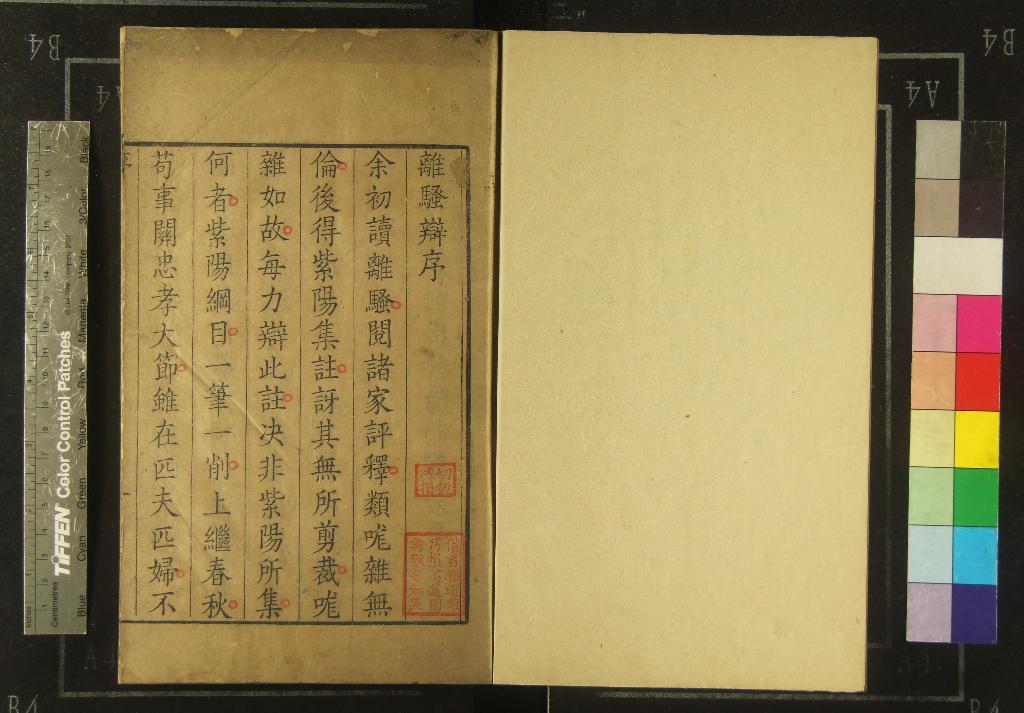 離騷辯序
余初讀離騷閱諸家評釋類哤雜無
倫後得紫陽集註訝其無所剪裁哤
雜如故每力辯此註决非紫陽所集
何者紫陽綱目一筆一削上繼春秋
苟事關忠孝大節雖在匹夫匹婦不
切勿
污損
TIFFEN Color Control Patches
© The Tiffen Company, 2007
Inches
Centimetres
Blue
Cyan
Green
Yellow
Red
Magenta
White
3/Color
Black
B4
A4
B4
A4
B4
A4
B4
A4